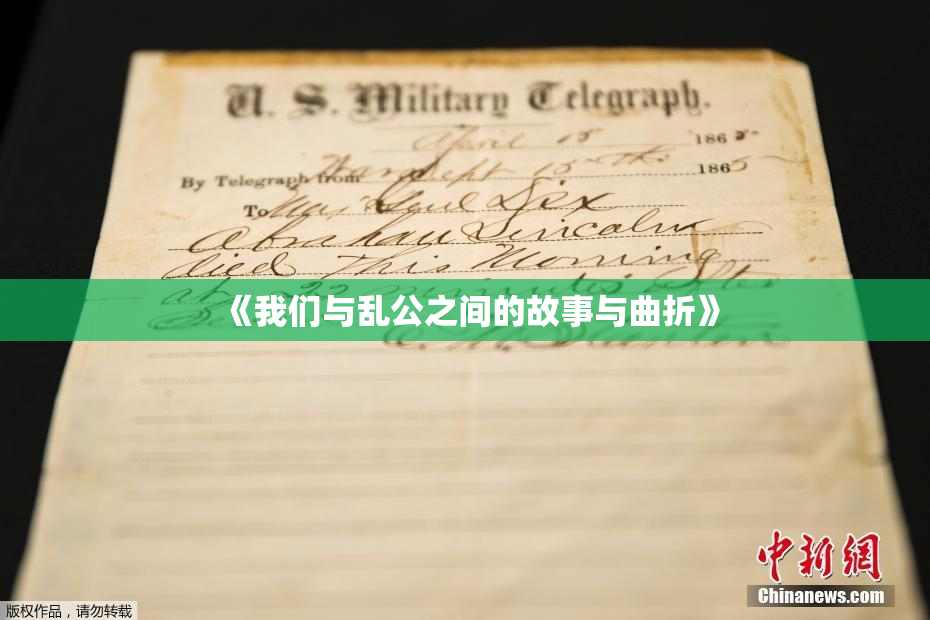 U. S. Military Telegraph.
April 15 1865
By Telegraph from War Dept 15th 1865
To Maj Genl Dix
Abraham Lincoln
died This Morning
at 22 minutes after
《我们与乱公之间的故事与曲折》
E. M. Stanton
中新网
Chinanews.com
版权作品，请勿转载